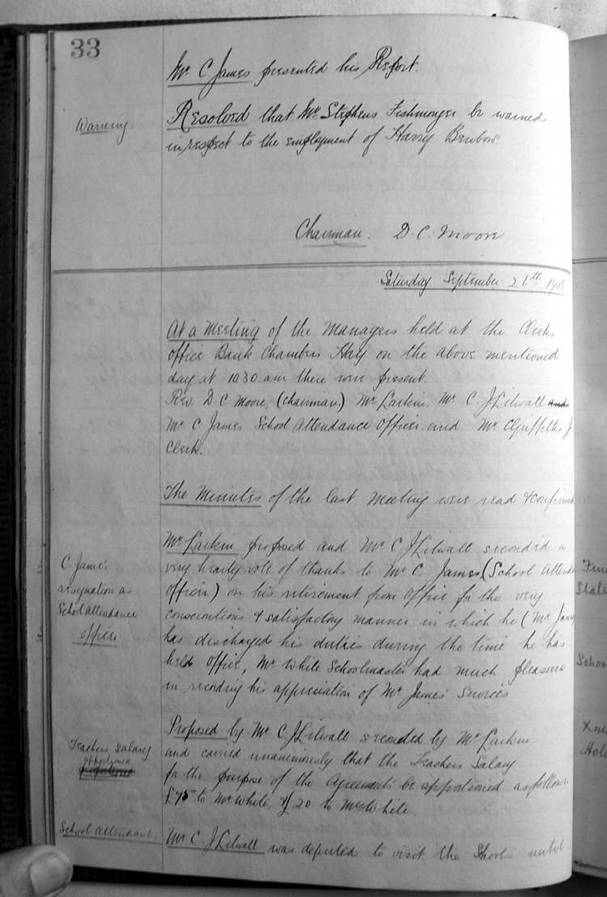 33
Mr C James presented his Report.
Warning
Resolved that Mr Stephens Fishmonger be warned
in respect to the employment of Harry
Chairman. D C Moore
Saturday September
At a meeting of the Managers held at the Clerks
office Bank Chambers Hay on the above mentioned
day at 10.30 am there were present.
Rev D C Moore, (chairman) Mr Larkin Mr C J Lilwall
Mr C James School Attendance Officer and Mr C Griffiths
Clerk.
The Minutes of the last Meeting were read & confirm
C James
resignation as
School Attendance
officer
Mr Larkin proposed and Mr C J Lilwall seconded a
very hearty vote of thanks to Mr C James (School Attend
officer) on his retirement from office for the very
conscientious & satisfactory manner in which he (Mr James
has discharged his duties during the time he has
held office, Mr White Schoolmaster had much pleasure
in recording his appreciation of Mr James' services
Teachers Salary
apportioned
Proposed by Mr C J Lilwall seconded by Mr Larkin
and carried unanimously that the Teachers Salary
for the purpose of the Agreements be apportioned as follows
£75 to Mr White & 20 to Mrs White.
School Attendance.
Mr C J Lilwall was deputed to visit the Schools until